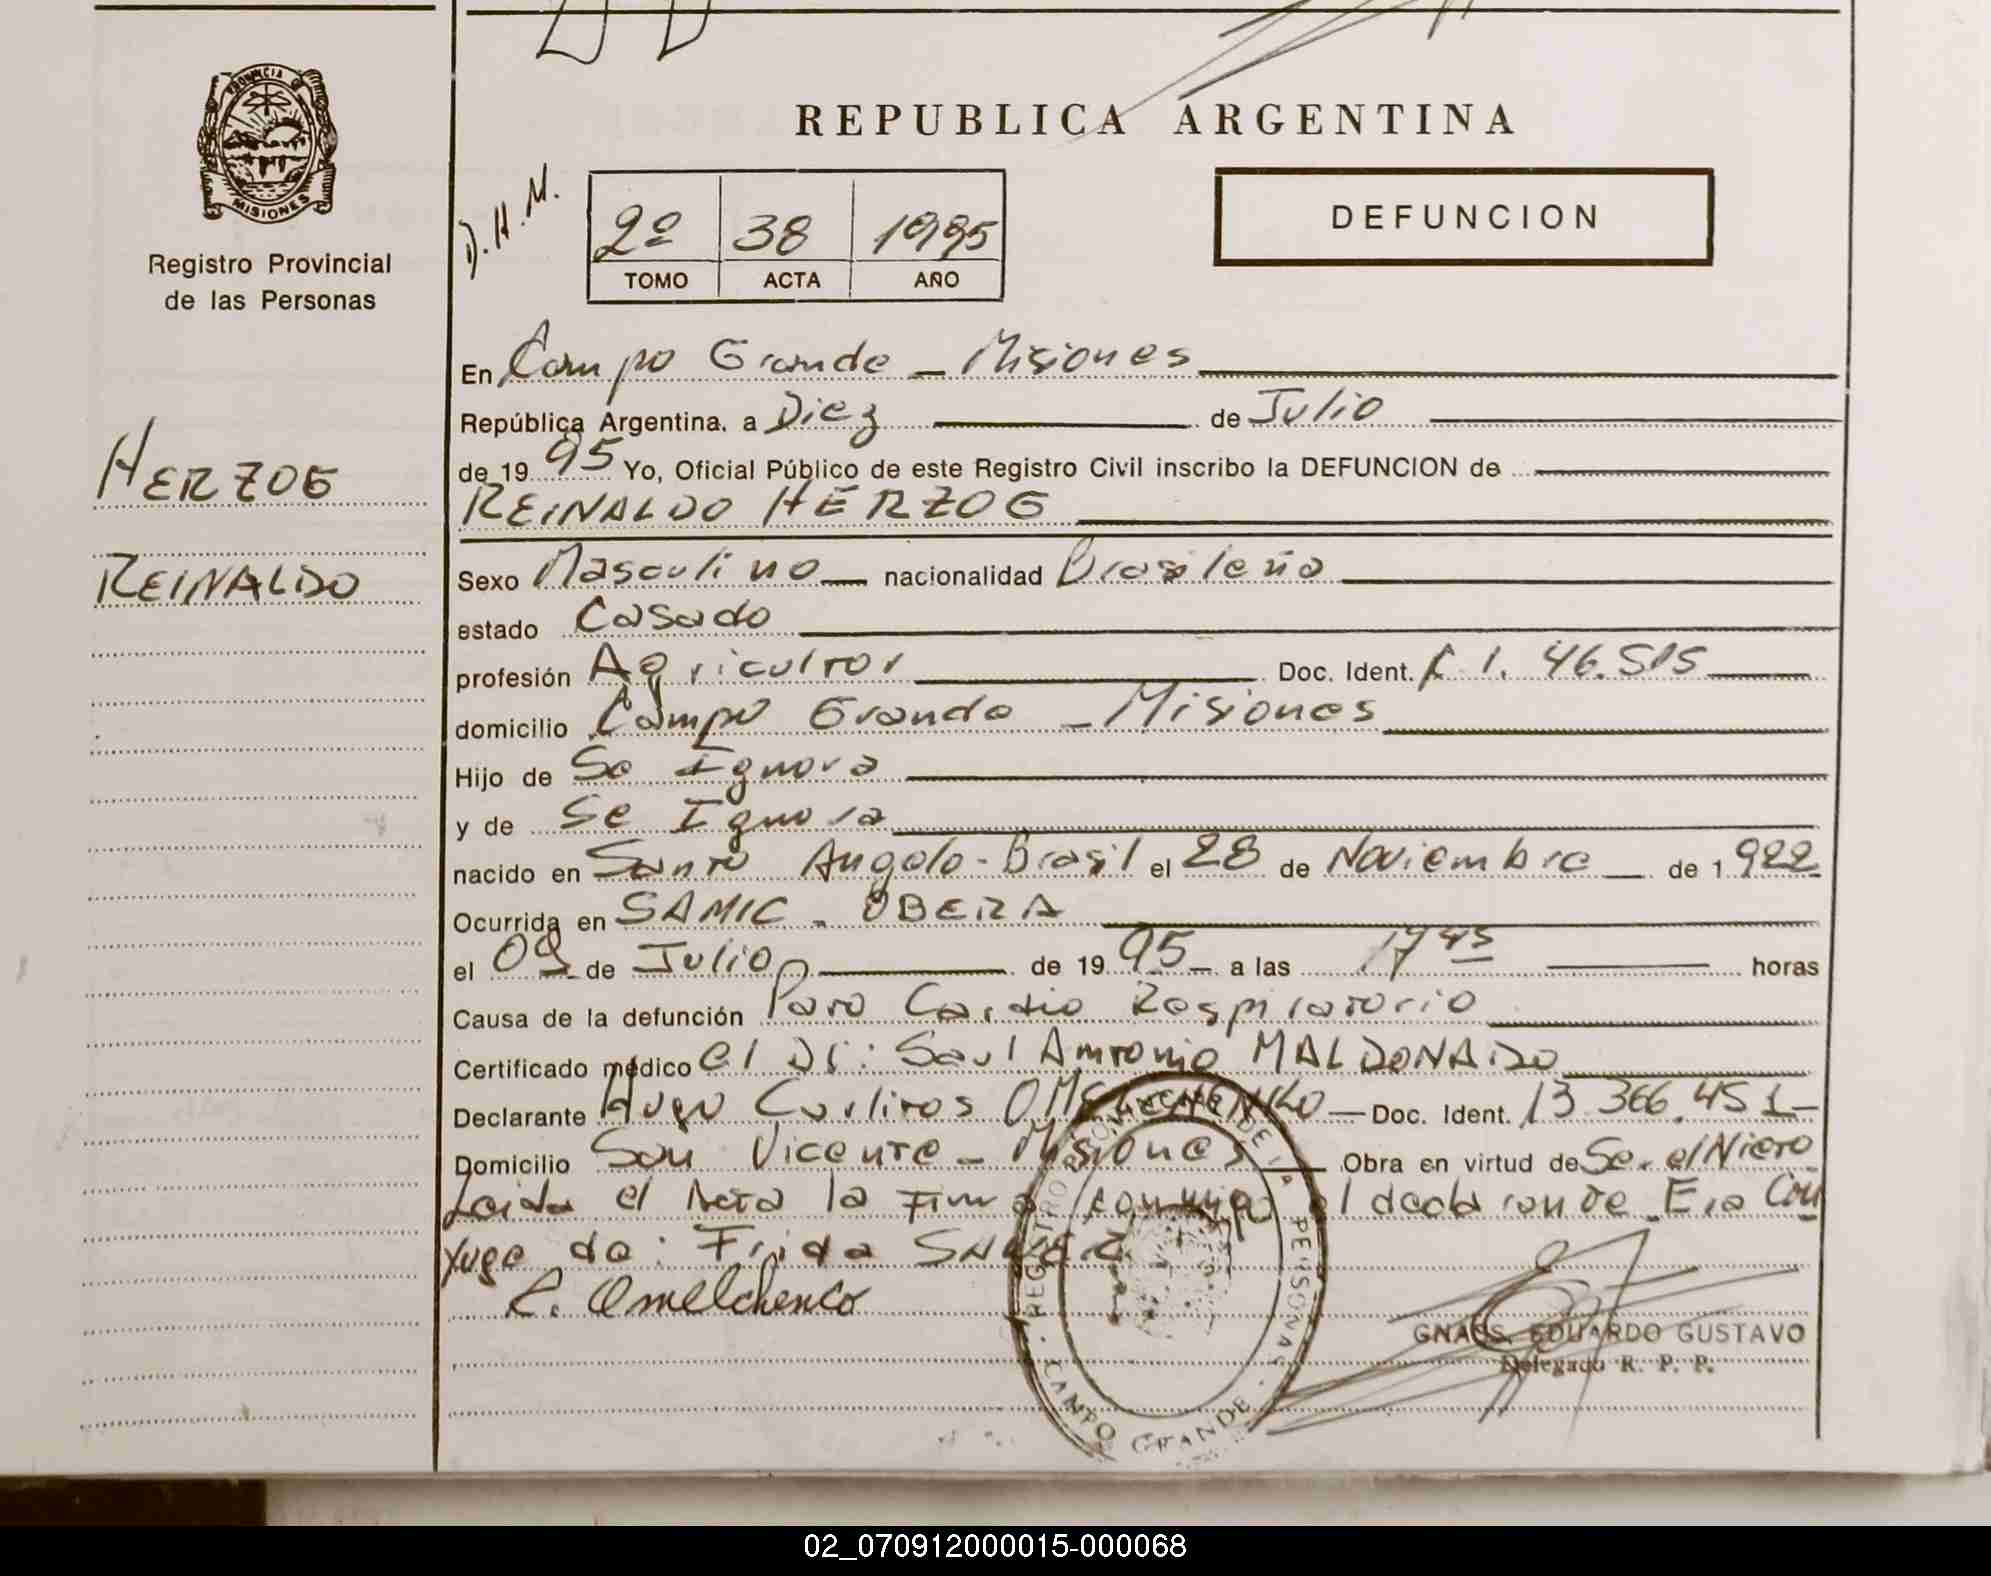 PROVINCIA DE
MISIONES
Registro Provincial
de las Personas
HERZOG
REINALDO
REPUBLICA ARGENTINA
D.H.M.
2º 38 1995
TOMO ACTA AÑO
DEFUNCION
En Campo Grande - Misiones
República Argentina, a Diez de Julio
de 19 95 Yo, Oficial Público de este Registro Civil inscribo la DEFUNCION de
REINALDO HERZOG
Sexo Masculino nacionalidad Brasileña
estado Casado
profesión Agricultor Doc. Ident. C.I. 46.515
domicilio Campo Grande - Misiones
Hijo de Se Ignora
y de Se Ignora
nacido en Santo Angelo - Brasil el 28 de Noviembre de 1922
Ocurrida en SAMIC - OBERA
el 09 de Julio de 19 95 a las 17 45 horas
Causa de la defunción Paro Cardio Respiratorio
Certificado médico el Dr: Saul Antonio MALDONADO
Declarante Hugo Carlitos OMELCHENKO Doc. Ident. 13.366.451
Domicilio San Vicente - Misiones Obra en virtud de Se. el Nieto
Leida el Acta la Firma conmigo el declarante. Era Con
yuge de: Frida
REGISTRO PROVINCIAL DE LA PERSONAS - CAMPO GRANDE -
C. Omelchenco
GNASS, EDUARDO GUSTAVO
Delegado R. P. P.
02_070912000015-000068